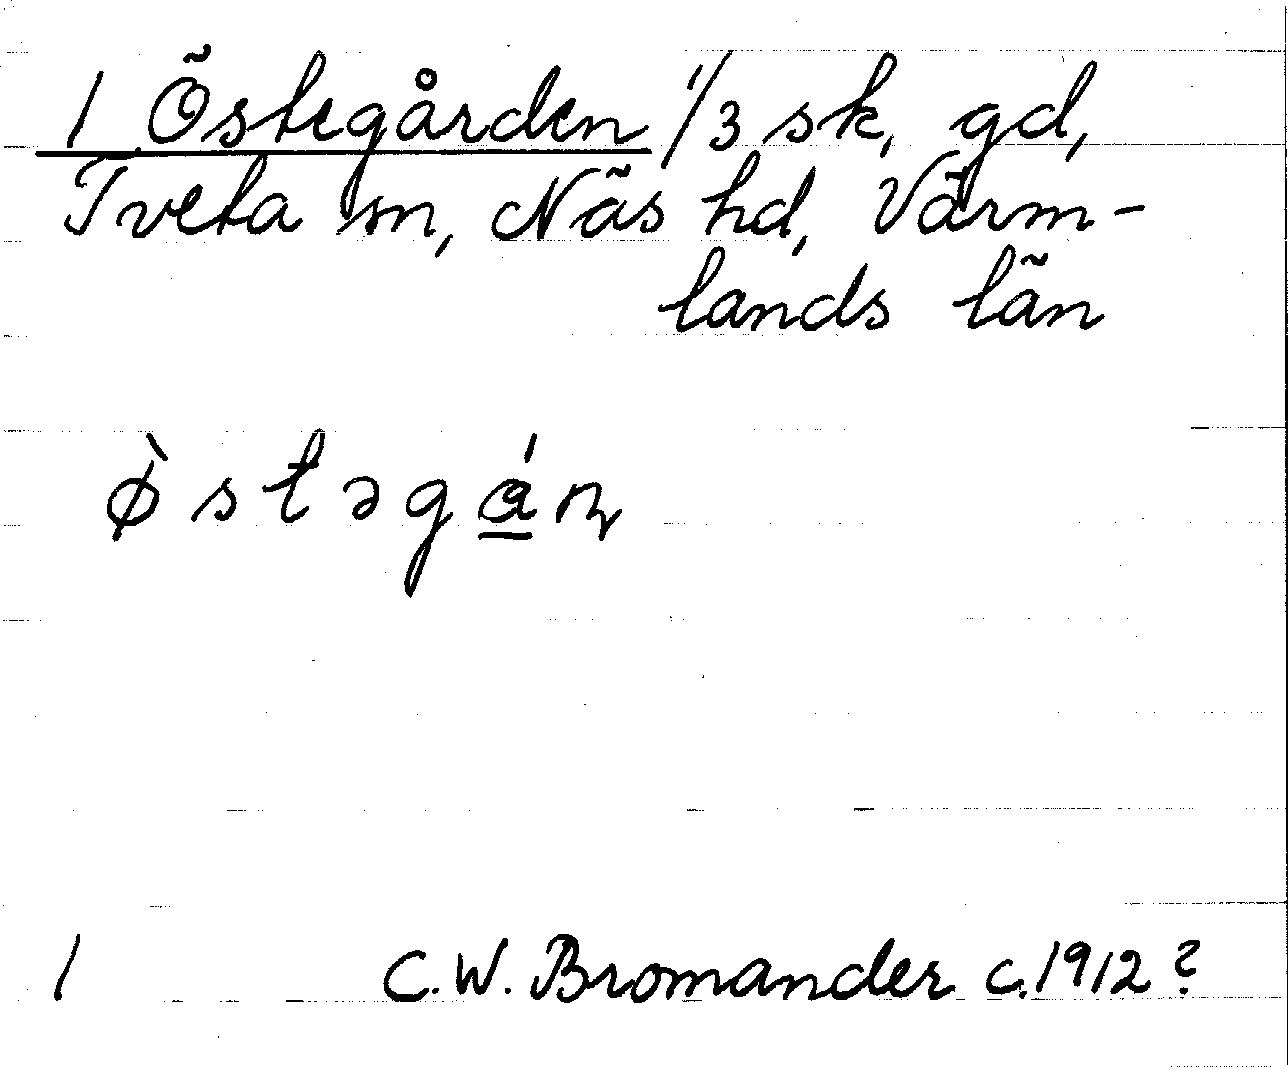 1 Östegården 1/3 sk, gd,
Tveta sn, Näs hd, Värm-
lands län
ø̀stəgá̱ɳ
1 C.W. Bromander c. 1912?